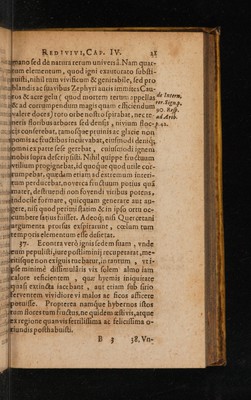 REDIVIVI, CAP. IV. 21
mano sed de natura rerum universâ. Nam quar-
tum elementum, quod igni exauturato substi-
tuisti, nihil tam vivificum & genitabile, sed pro
blandis ac suavibus Zephyri auris immites Cau-
ros & acre gelu (quod mortem rerum appellat
& ad corrumpendum magis quam efficiendum
valere docet) toto orbe nostro spirabat, nec te-
neris floribus arbores sed densis, nivium floc-
cis conserebat, tamosque pruinis ac glacie non
pomis ac fructibus incurvabat, ejusmodi deniq;
omni ex parte sese gerebat, ejusmodi ignem
nobis supra descripsisti. Nihil quippe fructuum
utilium progignebat, id quoque quod utile cor-
rumpebat, quædam etiam ad extremum interi-
tum perducebat, novet ea fructuum potius quâ
amaret, destruendi non fovendi viribus potens,
indocile formare, quicquam generare aut au-
gere, nisi quod perimi statim & in ipso ortu oc-
cumbere satius fuisset. Adeoq; nisi Quercetani
argumenta prorsus exspirarunt, cœlum tum
temporis elementum esse desierat.
37. Econtra verò ignis sedem suam, unde
eum pepulisti, jure postliminij recuperarat, me-
ritisque non exiguis tuebatur, in tantum, ut i-
pse minimè dissimulâris vix solem almo jam
calore reficientem, quæ hyemis iniquitate
quasi extincta jacebant, aut etiam sub sirio
ferventem vividiore vi malos ac ficos afficere
potuisse. Propterea namque hybernos istos
tum flores tum fructus, ne quidem æstivis, atque
ex regione quamvis fertilissima ac felicissima o-
riundis posthabuisti.
B 3 38. Vn-
de Intern.
rer. Sign. p.
90. Resp.
ad Arib.
p. 21.